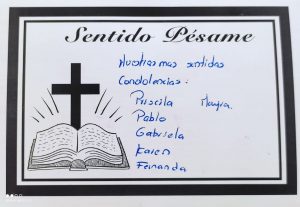 Sentido Pésame
Nuestras mas sentidas
Condolencias:
Priscila
Pablo
Gabriela
Karen
Fernanda